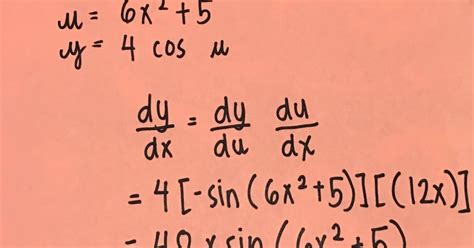 u = 6x² + 5
y = 4 cos u
dy/dx = dy/du du/dx
= 4[-sin(6x²+5)][(12x)]
= 48 x sin(6x²+5)